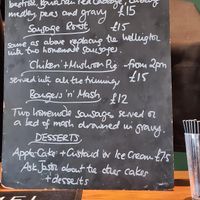 beetroot, Bavarian Red Cabbage,
medley peas and gravy £15
Sausage Roast, £15
same as above replacing the Wellington
with two homemade sausages.
Chicken & Mushroom Pie - from 2pm
served with all the trimmings £15
Bangers 'n' Mash £12
Two homemade sausages served on
a bed of mash drowned in gravy.
DESSERTS
Apple Cake + Custard or Ice Cream £7.5
Ask Justin about the other cakes
+ desserts